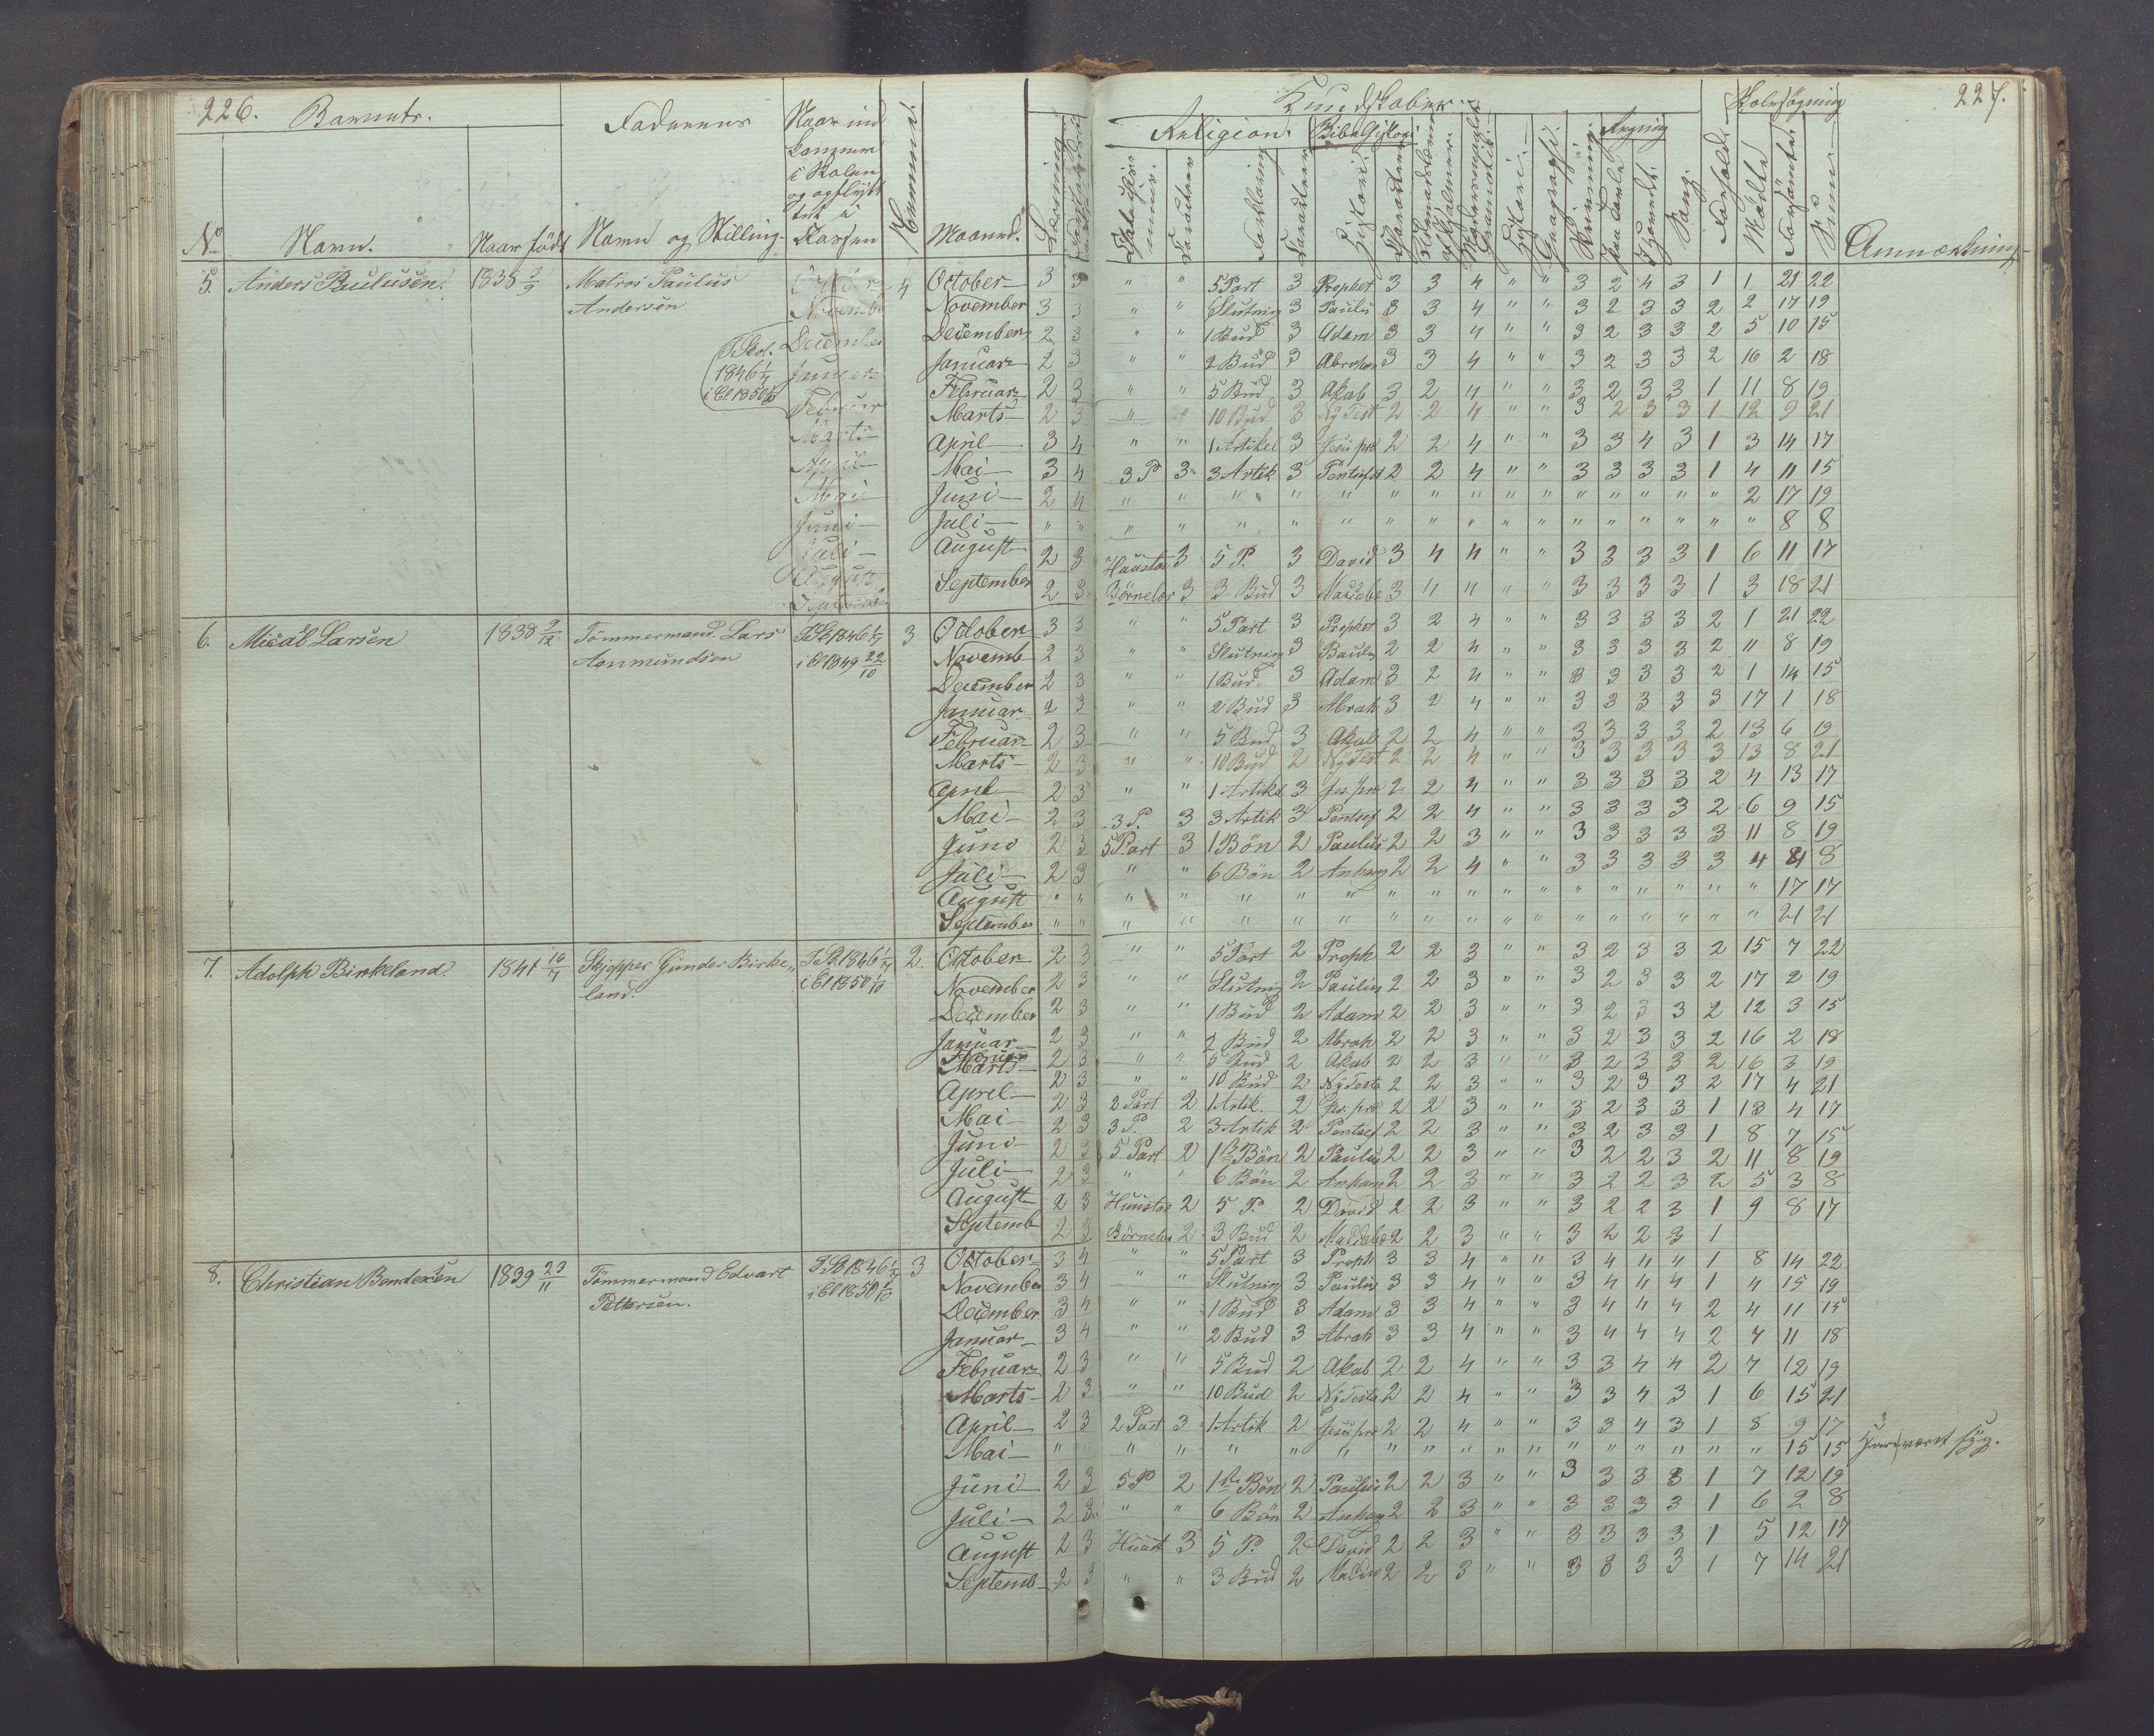 226. Barnets. Faderens Kundskaber. Skolesøgning 227.
Religion. Bibelhistori. Regning
No Navn. Naar född Navn og Stilling. Classen Maaned. Anmærkning
5. Anders Paulusen. 1838 Matros Paulus 4 October 3 3 " " 5 Part 3 Prophet 3 3 4 " " 3 2 4 3 1 1 21 22
Andersen November 3 3 " " Slutning 3 Paulu 3 3 4 " " 3 2 3 3 2 2 17 19
December 2 3 " " 1 Bud 3 Adam 3 3 4 " " 3 2 3 3 2 5 10 15
Januar 2 3 " " 2 Bud 3 Abraham 3 3 4 " " 3 2 3 3 2 16 2 18
Februar 2 3 " " 5 Bud 3 Akab 3 2 4 " " 3 2 3 3 1 11 8 19
Marts 2 3 " " 10 Bud 3 Ny Test 2 2 4 " " 3 2 3 3 1 12 9 21
April 3 4 " " 1 Artikel 3 Jesu pro 2 2 4 " " 3 3 4 3 1 3 14 17
Mai 3 4 3 P 3 3 Artik 3 Pentsfst 2 2 4 " " 3 3 3 3 1 4 11 15
Juni 2 4 " " " " " " " " " " " " " " " 2 17 19
Juli " " " " " " " " " " " " " " " " " " 8 8
August 2 3 Huustav 3 5 P. 3 David 3 4 4 " " 3 3 3 3 1 6 11 17
September 2 3 Börnelær 3 3 Bud 3 3 4 4 " " 3 3 3 3 1 3 18 21
6. Micâl Larsen 1838 9/12 Tömmermand Lars 3 October 3 3 " " 5 Part 3 Prophet 3 2 4 " " 3 3 3 3 2 1 21 22
Amundsen i Cl 1849 22/10 Novemb 2 3 " " Slutning 3 Paulu 2 2 4 " " 3 3 3 3 2 11 8 19
December 2 3 " " 1 Bud 3 Adam 3 2 4 " " 3 3 3 3 2 1 14 15
Januar 2 3 " " 2 Bud 3 Abrah 3 2 4 " " 3 3 3 3 3 17 1 18
Februar 2 3 " " 5 Bud 3 Akab 2 2 4 " " 3 3 3 3 2 13 6 19
Marts 2 3 " " 10 Bud 2 Ny Test 2 2 4 " " 3 3 3 3 3 13 8 21
April 2 3 " " 1 Artikel 3 Jes. pro 2 2 4 " " 3 3 3 3 2 4 13 17
Mai 2 3 3 P. 3 3 Artik 3 Pentsf 2 2 4 " " 3 3 3 3 2 6 9 15
Juni 2 3 5 Part 3 1 Bön 2 Paulus 2 2 3 " " 3 3 3 3 3 11 8 19
Juli 2 3 " " 6 Bön 2 Anhang 2 2 4 " " 3 3 3 3 3 4 4 8
August " " " " " " " " " " " " " " " " " " 17 17
September " " " " " " " " " " " " " " " " " " 21 21
7. Adolph Birkeland. 1841 16/7 Skjepper Gunder Birke„ 2. October 2 3 " " 5 Part 2 Proph 2 2 3 " " 3 2 3 3 2 15 7 22
land. i Cl 1850 1/10 November 2 3 " " Slutning 2 Paulin 2 2 3 " " 3 2 3 3 2 17 2 19
December 2 3 " " 1 Bud 2 Adam 2 2 3 " " 3 2 3 3 2 12 3 15
Januar 2 3 " " 2 Bud 2 Abrah 2 2 3 " " 3 2 3 3 2 16 2 18
Februar 2 3 " " 5 Bud 2 Akab 2 2 3 " " 3 2 3 3 2 16 3 19
Marts 2 3 " " 10 Bud 2 Ny Testa 2 2 3 " " 3 2 3 3 2 17 4 21
April 2 3 2 Part 2 1 Artik. 2 Jes. pro 2 2 3 " " 3 2 3 3 1 13 4 17
Mai 2 3 3 P. 2 3 Artik 2 Pentsef 2 2 3 " " 3 2 3 3 1 8 7 15
Juni 2 3 5 Part 2 1ste Bön 2 Paulus 2 2 3 " " 3 2 2 3 2 11 8 19
Juli 2 3 " " 6 Bön 2 Anhang 2 2 3 " " 3 2 2 3 2 5 3 8
August 2 3 Huustav 2 5 P. 2 David 2 2 3 " " 3 2 2 3 1 9 8 17
Septemb 2 3 Börnelær 2 3 Bud 2 2 2 3 " " 3 2 2 3 1
8. Christian Bendexsen 1839 23/11 Tömmermand Edvart 3 October 3 4 " " 5 Part 3 Proph 3 3 4 " " 3 4 4 4 1 8 14 22
Pettersen. i Cl 1850 1/10 November 3 4 " " Slutning 3 Paulus 3 3 4 " " 3 4 4 4 1 4 15 19
December 3 4 " " 1 Bud 3 Adam 3 3 4 " " 3 4 4 4 2 4 11 15
Januar 3 4 " " 2 Bud 3 Abrah 3 3 4 " " 3 4 4 4 2 7 11 18
Februar 2 3 " " 5 Bud 2 Akab 2 2 4 " " 3 3 4 4 2 7 12 19
Marts 2 3 " " 10 Bud 2 Ny Testa 2 2 4 " " 3 3 4 3 1 6 15 21
April 2 3 2 Part 3 1 Artik 2 Jesu pro 2 2 4 " " 3 3 4 3 1 8 9 17
Mai " " " " " " " " " " " " " " " " " 15 15 Har været syg.
Juni 2 3 5 P 2 1ste Bön 2 Paulus 2 2 3 " " 3 3 3 3 1 7 12 19
Juli 2 3 " " 6 Bön 2 Anhang 2 2 3 " " 3 3 3 3 1 6 2 8
August 2 3 Huust 3 5 P. 2 David 2 2 3 " " 3 3 3 3 1 5 12 17
Septemb 2 3 " " 3 Bud 2 2 2 3 " " 3 3 3 3 1 7 14 21